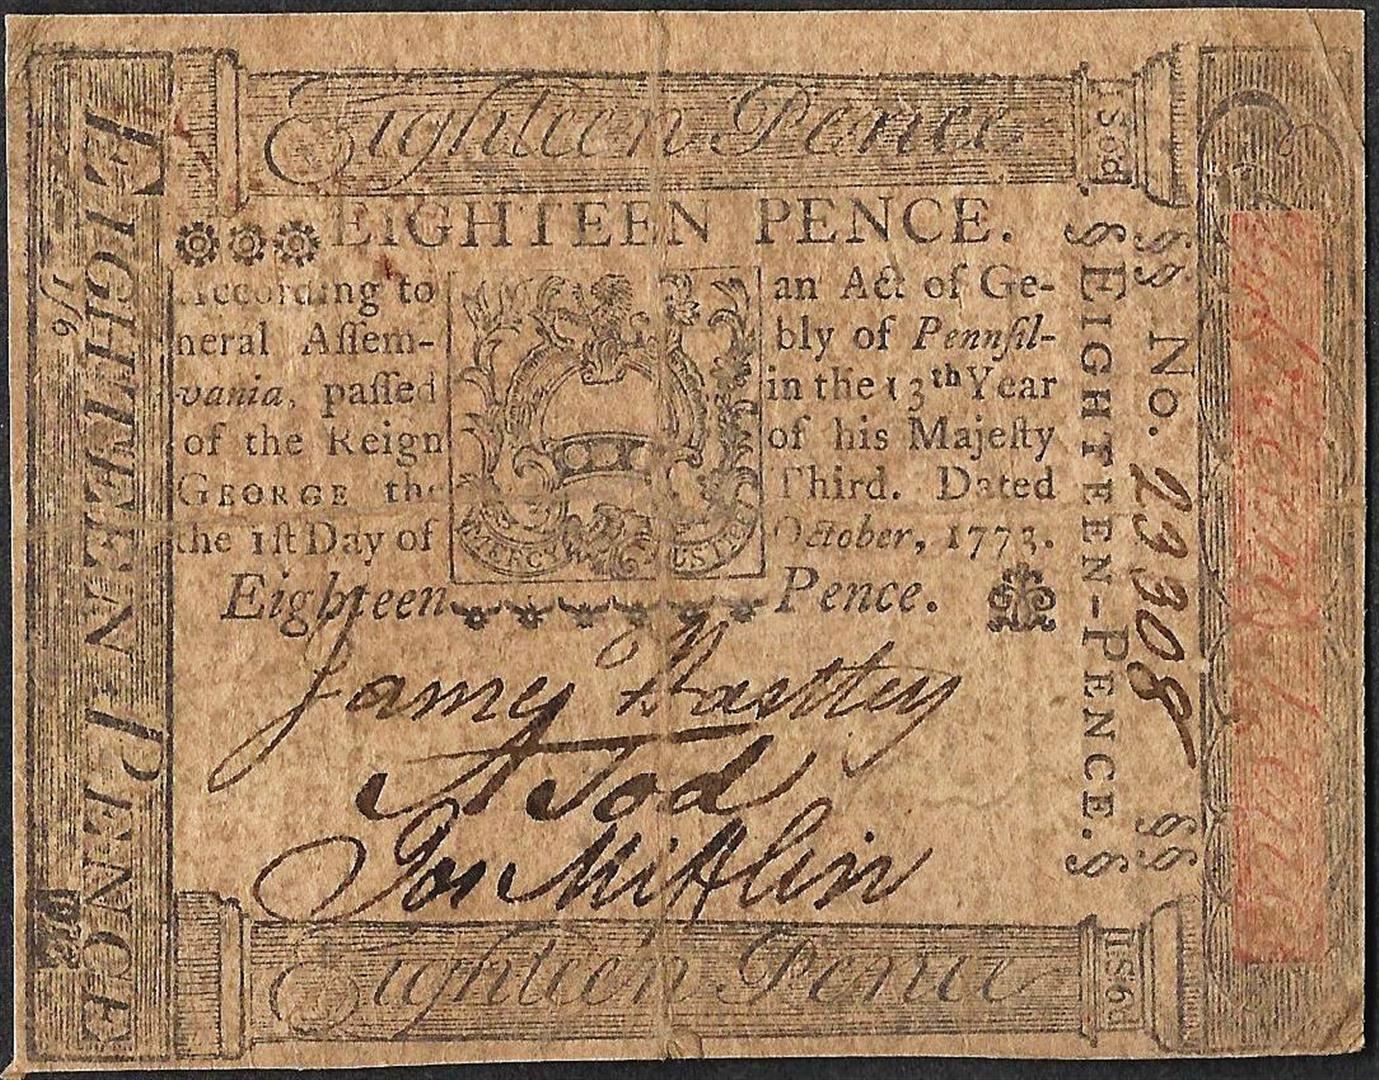 Eighteen Pence
1S6d
EIGHTEEN PENCE.
According to an Act of Ge-
neral Aſſem- bly of Pennſil-
vania, paſſed in the 13th Year
of the Reign of his Majeſty
GEORGE the Third. Dated
the 1ſt Day of October, 1773.
Eighteen Pence.
James
A Tod
Jos Mifflin
Eighteen Pence
1S6d
EIGHTEEN PENCE
1/6
§ EIGHTEEN-PENCE. §
§§ No. 23308 §§
MERCY JUSTICE